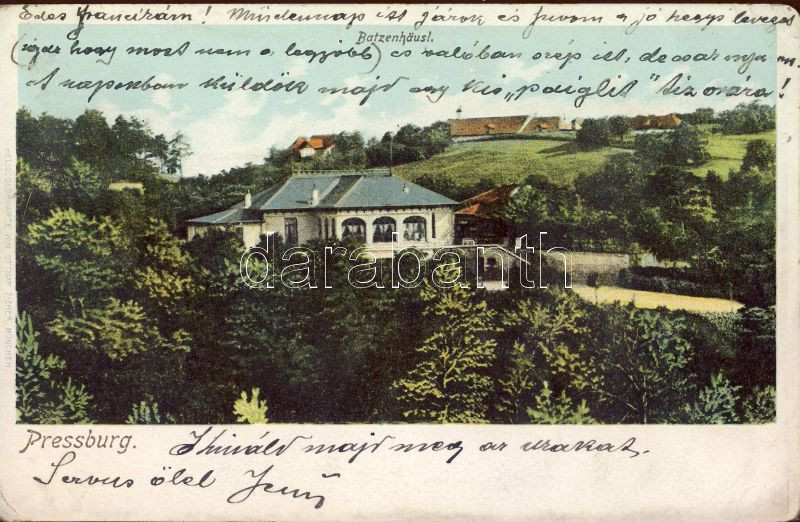 Edes Francirám! Mindennap itt járok és szívom a jó hegyi levegőt
Batzenhäusl.
(igaz hogy most nem a legjobb) és valóban szép itt, de
napokban küldök majd egy kis „paiglit” tizorára!
HELIOCOLORKARTE VON OTTMAR ZIEHER, MÜNCHEN
darabanth
Pressburg.
majd meg az urakat.
Servus ölel Jenő